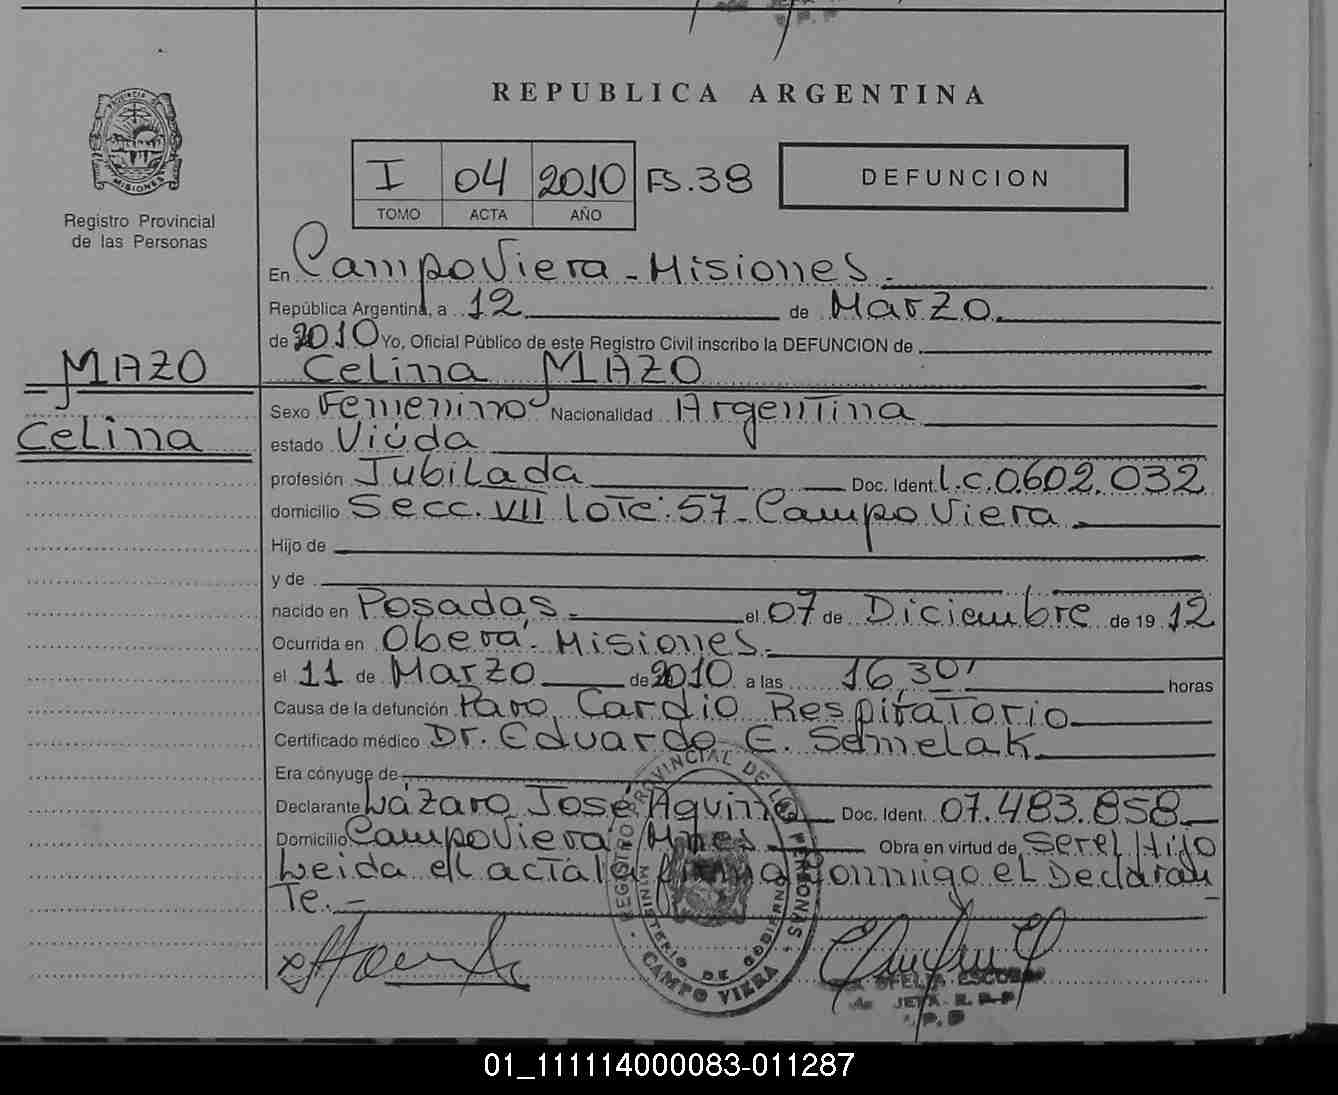 REPUBLICA ARGENTINA
PROVINCIA DE
MISIONES
Registro Provincial
de las Personas
I 04 2010 FS.38
TOMO ACTA AÑO
DEFUNCION
En Campo Viera - Misiones.
República Argentina, a 12 de Marzo.
de 2010 Yo, Oficial Público de este Registro Civil inscribo la DEFUNCION de
MAZO
Celina
Celina MAZO
Sexo Femenino Nacionalidad Argentina
estado Viuda
profesión Jubilada Doc. Ident. L.C.0602.032
domicilio Secc. VII lote: 57 - Campo Viera
Hijo de
y de
nacido en Posadas. el 07 de Diciembre de 19 12
Ocurrida en Oberá - Misiones.
el 11 de Marzo de 2010 a las 16,30' horas
Causa de la defunción Paro Cardio Respiratorio
Certificado médico Dr. Eduardo E. Semelak
Era cónyuge de
Declarante Lázaro José Aquino Doc. Ident. 07.483.858
Domicilio Campo Viera Mnes Obra en virtud de Ser el Hijo
Leida el acta la firma conmigo el Declaran
Te.-
REGISTRO PROVINCIAL DE LAS PERSONAS
MINISTERIO DE GOBIERNO
CAMPO VIERA
OFELIA ESCOBAR
JEFA R.P.P
01_111114000083-011287